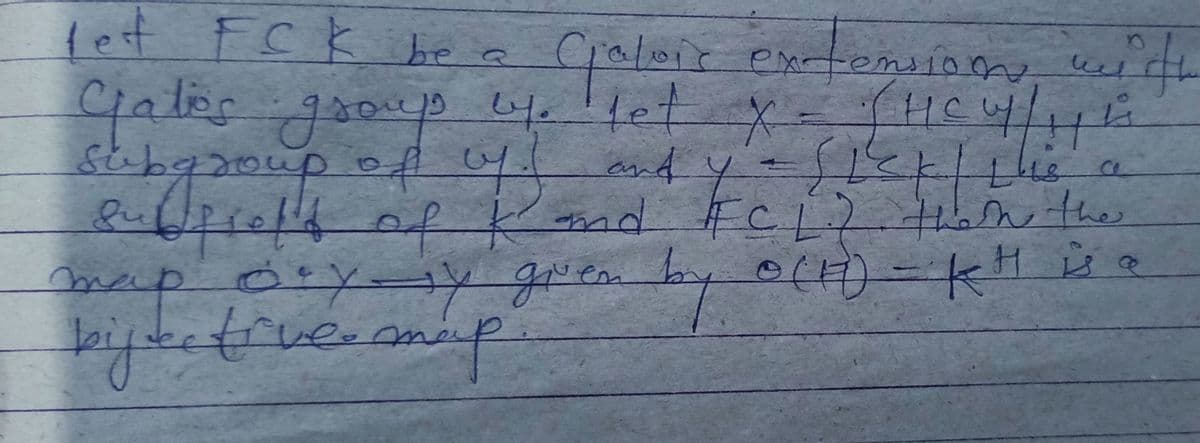 let F ⊂ K be a Galois extension with
Galios group G. let X = {H ⊂ G / H is
subgroup of G.} and y = {L ⊆ K / L is a
subfield of K and F ⊂ L.}. then the
map θ: Y → y given by θ(H) = K^H is a
bijective map.